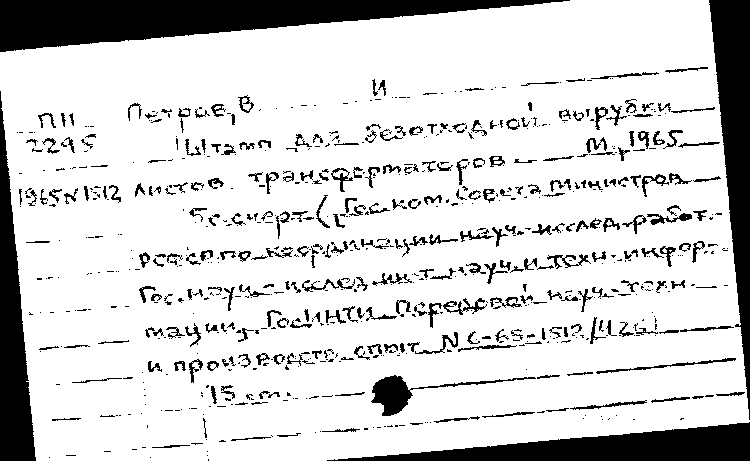 И
ПII Петров, В
2295 Штамп для безотходной вырубки
1965 N 1512 листов трансформаторов. М., 1965
5с. с черт. (Гос. ком. Совета Министров
РСФСР по координации науч.-исслед. работ.
Гос. науч.-исслед. ин-т науч. и техн. инфор-
мации, ГосИНТИ. Передовой науч.-техн.
и производств. опыт. N 6-65-1512/426)
15 см.